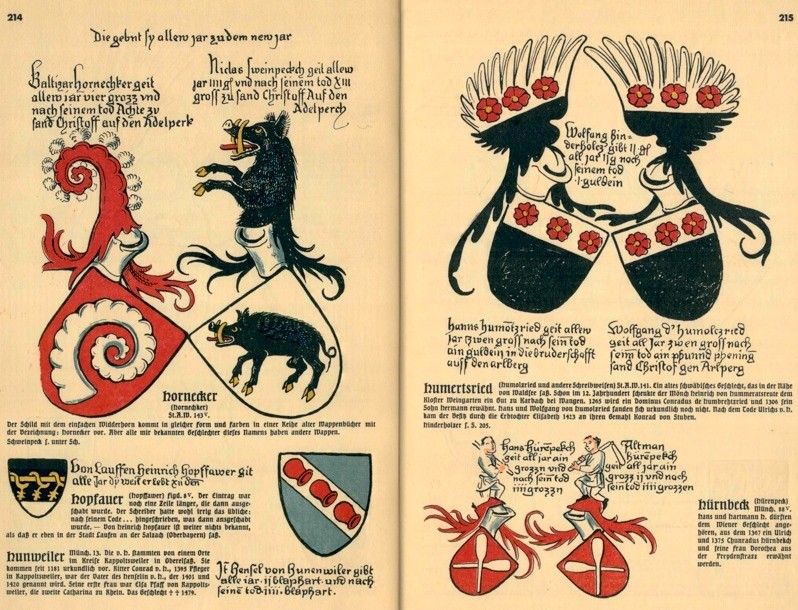 214
Die gebnt sy allew jar zu dem new jar
Baltizar hornechker geit
allew iar vier grozz vnd
nach seinem tod Achte zu
sand Christoff auff den Adelperk
Niclas sweinpeckch geit allew
jar IIII gf vnd nach seinem tod XIII
gross zu sand Christoff Auf den
Adelperch
Hornecker
(Hornechker)
St.A.W. 143 v.
Der Schild mit dem einfachen Widderhorn kommt in gleicher Form und Farben in einer Reihe alter Wappenbücher mit
der Bezeichnung: Hornecker vor. Aber alle mir bekannten Geschlechter dieses Namens haben andere Wappen.
Schweinpeck s. unter Sch.
Von Lauffen Heinrich Hopffawer git
alle Jar dy weil er lebt zu den
Hopfauer (Hopffawer) Figd. 8 v. Der Eintrag war
noch eine Zeile länger, die dann ausge-
schabt wurde. Der Schreiber hatte wohl irrig das übliche:
nach seinem Tode . . . hingeschrieben, was dann ausgeschabt
wurde. — Von Heinrich Hopfauer ist weiter nichts bekannt,
als daß er eben in der Stadt Laufen an der Salzach (Oberbayern) saß.
Hunweiler Münch. 13. Die v. H. stammten von einem Orte
im Kreise Rappoltsweiler in Oberelsaß. Sie
kommen seit 1181 urkundlich vor. Ritter Conrad v. H., 1395 Pfleger
in Rappoltsweiler, war der Vater des Henselin v. H., der 1401 und
1420 genannt wird. Seine erste Frau war Elsa Pfaff von Rappolts-
weiler, die zweite Catharina zu Rhein. Das Geschlecht † † 1479.
Jt Hensel von Hunenwiler gibt
alle iar ij blaphart vnd nach
seine tod iiii blaphart.
215
Wolfang hin-
derholcz gibt II gf
all jar I/g noch
seinem tod
1 guldein
Hanns humolzried geit allew
jar zwen gross nach seim tod
ain guldein in die bruderschafft
auff den arlberg
Wolfgang d' humolczried
geit all Jar zwen gross nach
seim tod ain pfunnd phening
sand Christof gen Arlperg
Humertsried (Humolzried und andere Schreibweisen) St.A.W. 141. Ein altes schwäbisches Geschlecht, das in der Nähe
von Waldsee saß. Schon im 12. Jahrhundert schenkte der Mönch Heinrich von Hummeratsreute dem
Kloster Weingarten ein Gut zu Karbach bei Wangen. 1265 wird ein Dominus Conradus de Humbrehtzried und 1306 sein
Sohn Hermann erwähnt. Hans und Wolfgang von Humolzried fanden sich urkundlich noch nicht. Nach dem Tode Ulrichs v. H.
kam der Besitz durch die Erbtochter Elisabeth 1423 an ihren Gemahl Konrad von Stuben.
Hinderholzer s. S. 205.
Hans hürepekch
geit all jar ain
grozzn vnd
nach seim tod
iiii grozzn
Altman
hürepekch
geit all jar ain
grozz ij vnd nach
seim tod iiii grozzen
Hürnbeck (Hürnpeck)
Münch. 88 v.
Hans und Hartmann H. dürften
dem Wiener Geschlecht ange-
hören, aus dem 1367 ein Ulrich
und 1375 Chunradus Hürnbekh
und seine Frau Dorothea aus
der Preydenstraze erwähnt
werden.